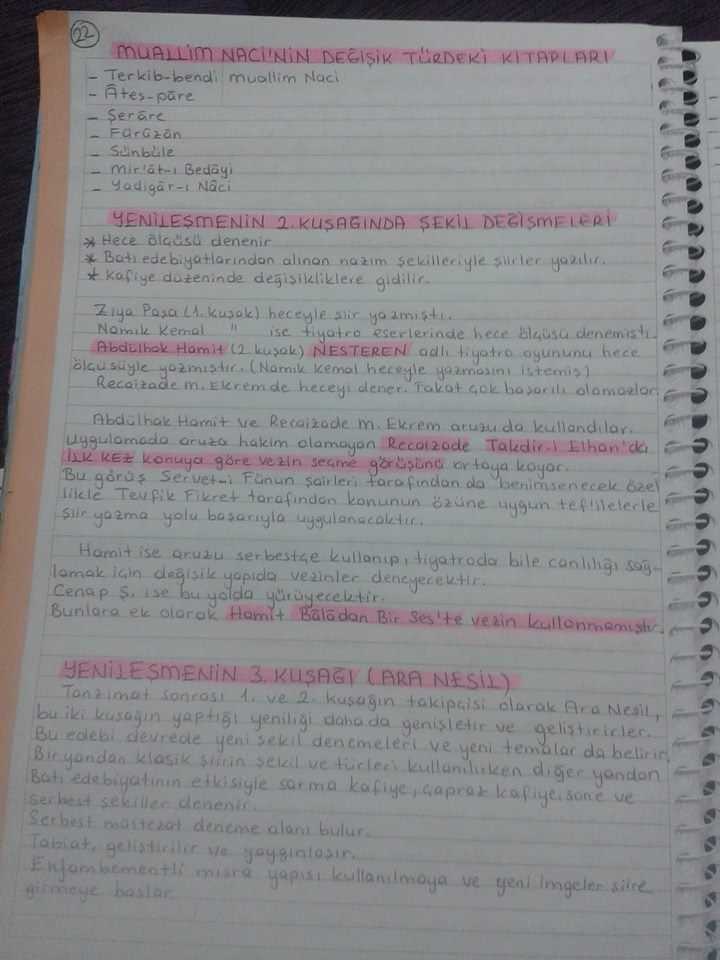 22
MUALLİM NACİ'NİN DEĞİŞİK TÜRDEKİ KİTAPLARI
- Terkib-bendi muallim Naci
- Âteş-pâre
- Şerâre
- Fürûzân
- Sünbüle
- Mir'ât-ı Bedâyi
- Yadigâr-ı Nâci
YENİLEŞMENİN 2. KUŞAĞINDA ŞEKİL DEĞİŞMELERİ
* Hece ölçüsü denenir
* Batı edebiyatlarından alınan nazım şekilleriyle şiirler yazılır.
* Kafiye düzeninde değişikliklere gidilir.
Ziya Paşa (1. kuşak) heceyle şiir yazmıştı.
Namık Kemal " ise tiyatro eserlerinde hece ölçüsü denemişti.
Abdülhak Hamit (2. kuşak) NESTEREN adlı tiyatro oyununu hece
ölçüsüyle yazmıştır. (Namık Kemal heceyle yazmasını istemiş)
Recaizade m. Ekrem de heceyi dener. Fakat çok başarılı olamazlar.
Abdülhak Hamit ve Recaizade m. Ekrem aruzu da kullandılar.
Uygulamada aruza hakim olamayan Recaizade Takdir-i Elhan'da
İLK KEZ konuya göre vezin seçme görüşünü ortaya koyar.
Bu görüş Servet-i Fünun şairleri tarafından da benimsenecek özel
likle Tevfik Fikret tarafından konunun özüne uygun tef'ilelerle
şiir yazma yolu başarıyla uygulanacaktır.
Hamit ise aruzu serbestçe kullanıp, tiyatroda bile canlılığı sağ-
lamak için değişik yapıda vezinler deneyecektir.
Cenap Ş. ise bu yolda yürüyecektir.
Bunlara ek olarak Hamit Bâlâdan Bir Ses'te vezin kullanmamıştır.
YENİLEŞMENİN 3. KUŞAĞI (ARA NESİL)
Tanzimat sonrası 1. ve 2. kuşağın takipçisi olarak Ara Nesil,
bu iki kuşağın yaptığı yeniliği daha da genişletir ve geliştirirler.
Bu edebi devrede yeni şekil denemeleri ve yeni temalar da belirir.
Bir yandan klasik şiirin şekil ve türleri kullanılırken diğer yandan
Batı edebiyatının etkisiyle sarma kafiye, çapraz kafiye, sone ve
serbest şekiller denenir.
Serbest müstezat deneme alanı bulur.
Tabiat, geliştirilir ve yaygınlaşır.
Enjambementli mısra yapısı kullanılmaya ve yeni imgeler şiire
girmeye başlar